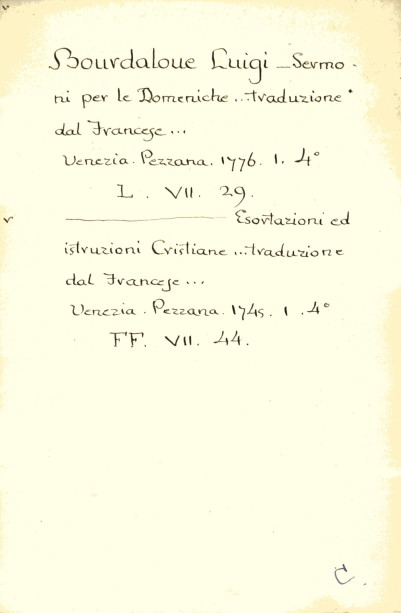 Bourdaloue Luigi _ Sermo -
ni per le Domeniche ... traduzione
dal Francese ...
Venezia. Pezzana. 1776. 1. 4°
L. VII. 29.
Esortazioni ed
istruzioni Cristiane ... traduzione
dal Francese ...
Venezia. Pezzana. 1745. 1. 4°
FF. VII. 44.
C.